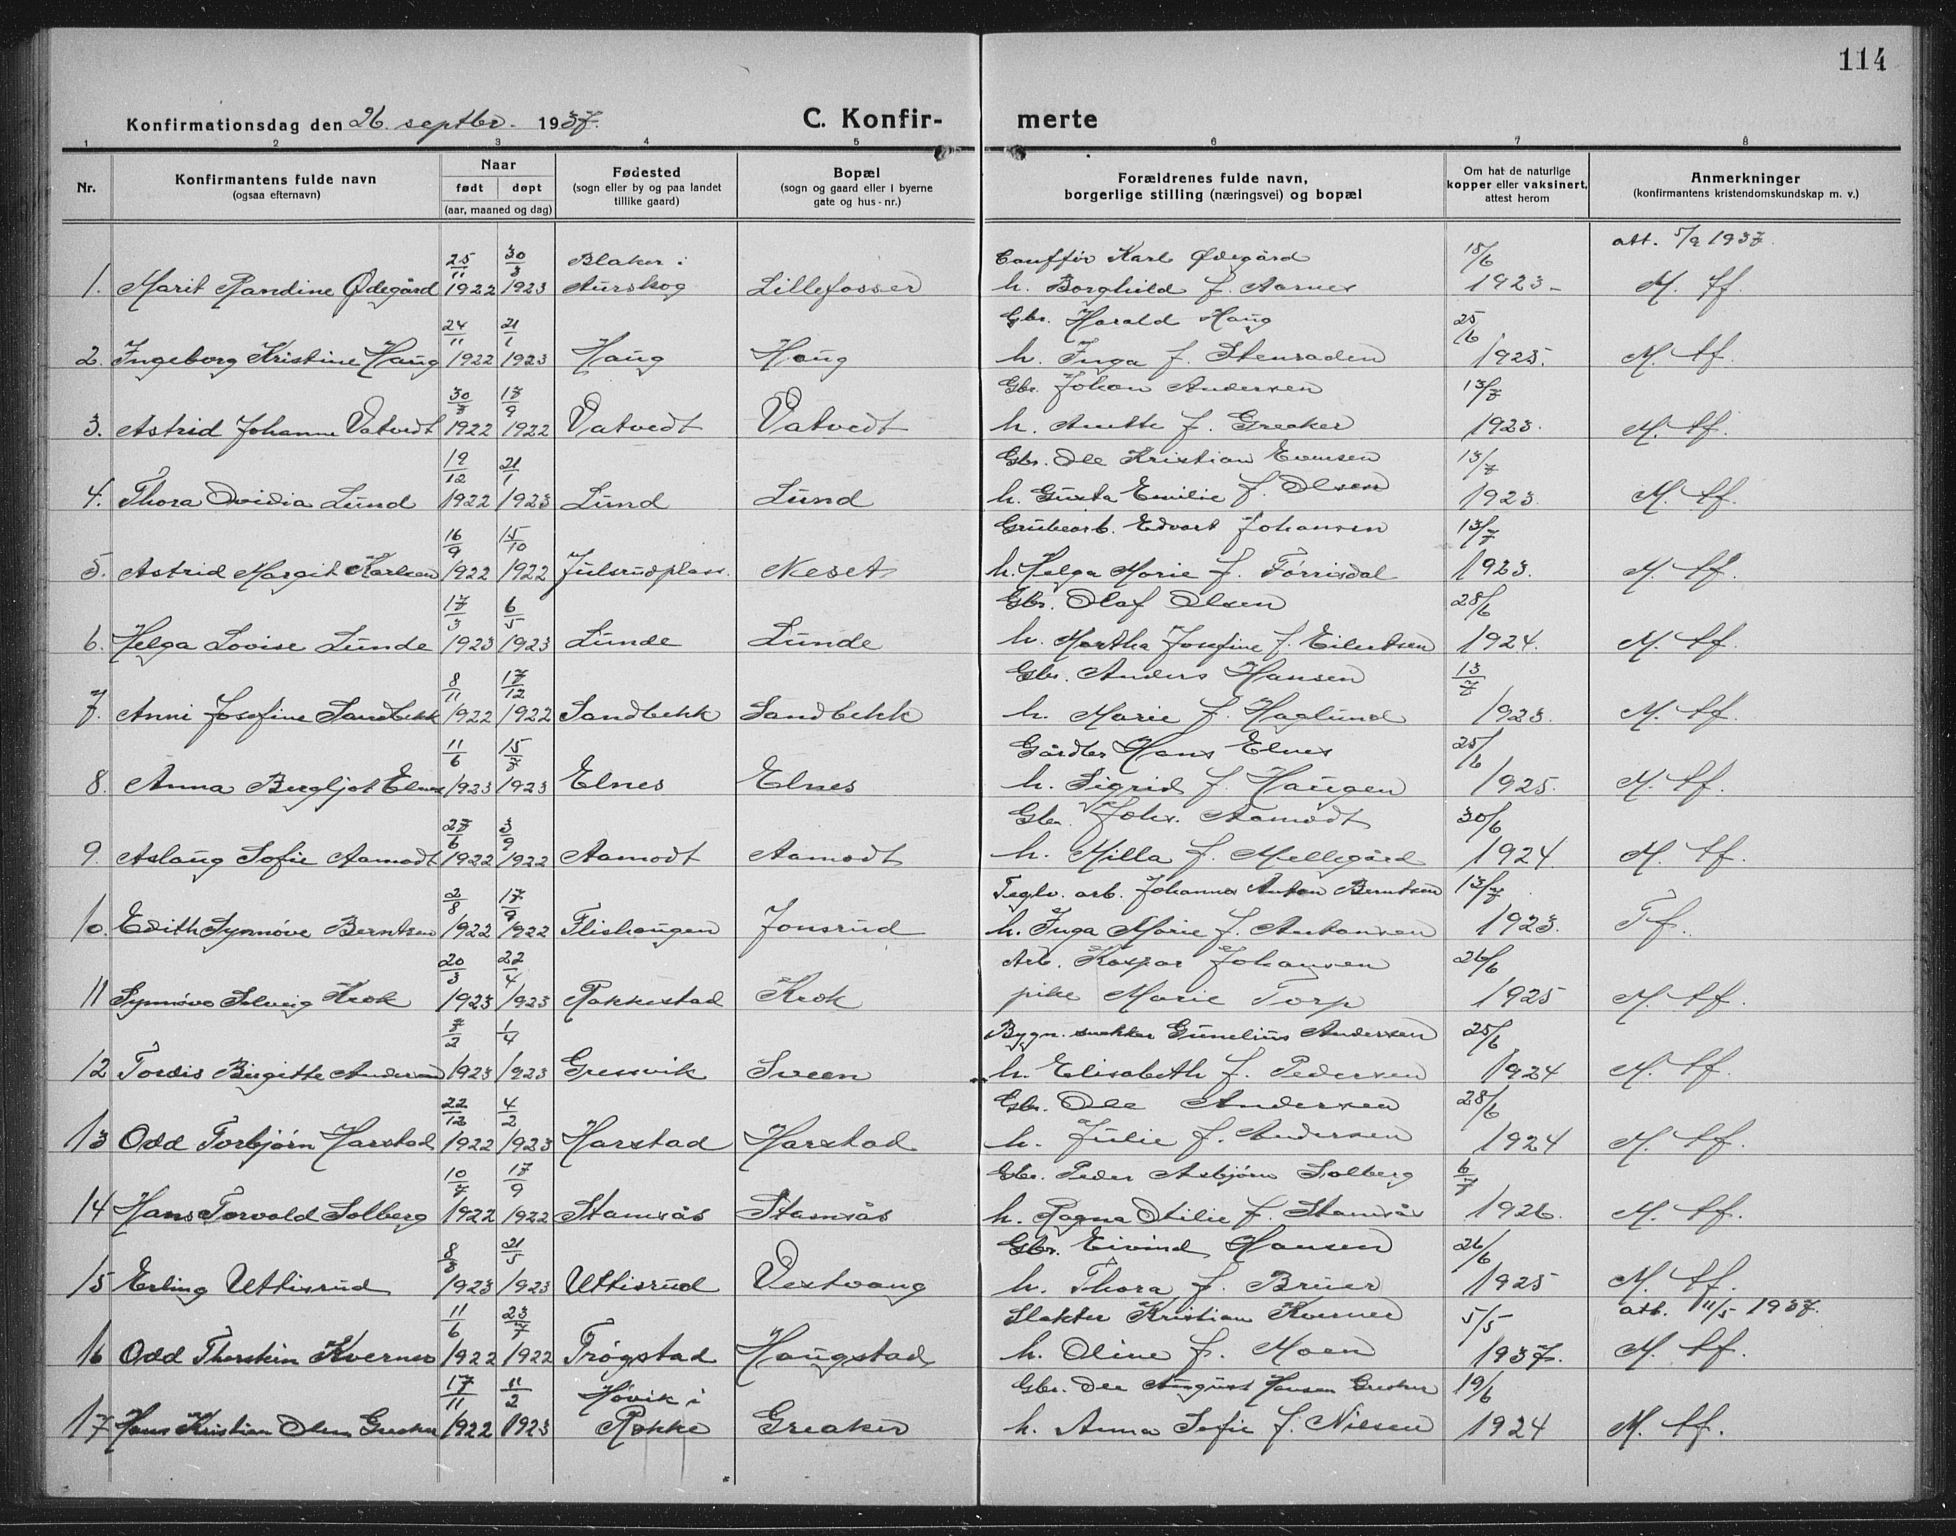 114
Konfirmationsdag den 26. septbr. 1937. C. Konfirmerte
1 2 3 4 5 6 7 8
Nr. Konfirmantens fulde navn (ogsaa efternavn) Naar født døpt (aar, maaned og dag) Fødested (sogn eller by og paa landet tillike gaard) Bopæl (sogn og gaard eller i byerne gate og hus-nr.) Forældrenes fulde navn, borgerlige stilling (næringsvei) og bopæl Om hat de naturlige kopper eller vaksinert, attest herom Anmerkninger (konfirmantens kristendomskundskap m. v.)
25/11 30/3 Blaker i Karl Ødegård 15/6 att. 5/9 1937.
1. Marit Randine Ødegård 1922 1923 Aurskog Lillefosser h. Borghild f. Aarnes 1923- M. tf.
24/11 21/1 Gbr. Harald Haug 25/6
2. Ingeborg Kristine Haug 1922 1923 Haug Haug h. Inga f. Stensraden 1925. M. tf.
30/7 17/9 Gbr. Johan Andersen 13/7
3. Astrid Johanne Vatvedt 1922 1922 Vatvedt Vatvedt h. Anette f. Greaker 1923. M. tf.
19/12 21/1 Gbr. Ole Kristian Evensen 13/7
4. Thora Ovidia Lund 1922 1923 Lund Lund h. Gusta Emilie f. Olsen 1923. M. tf.
16/9 15/10 Grubearb. Edvart Johansen 13/7
5. Astrid Margit Karlsen 1922 1922 Julsrudplass. Neset h. Helga Marie f. Tørrisdal 1923. M. tf.
17/3 6/5 Gbr. Olaf Olsen 28/6
6. Helga Lovise Lunde 1923 1923 Lunde Lunde h. Martha Josefine f. Eilertsen 1924. M. tf.
8/11 17/12 Gbr. Anders Hansen 13/7
7. Anni Josefine Sandbekk 1922 1922 Sandbekk Sandbekk h. Marie f. Haglund 1923. M. tf.
11/6 15/7 Hans Elnes 25/6
8. Anna Bergljot Elnes 1923 1923 Elnes Elnes h. Sigrid f. Haugen 1925. M. tf.
27/6 3/9 Gbr. Johs. Aamodt 30/6
9. Aslaug Sofie Aamodt 1922 1922 Aamodt Aamodt h. Milla f. Mellegård 1924. M. tf.
2/8 17/9 Teglv. arb. Johannes Anton Berntsen 13/7
10. Edith Synnøve Berntsen 1922 1922 Flishaugen Jonsrud h. Inga Marie f. Antonsen 1923. Tf.
20/3 22/4 Arb. Kaspar Johansen 26/6
11 Synnøve Solveig Krok 1923 1923 Rakkestad Krok pike Marie Torp 1925 M. tf.
7/2 1/4 Bygn. snekker Gunelius Andersen 25/6
12 Tordis Birgitte Andersen 1923 1923 Gressvik Sveen h. Elisabeth f. Pedersen 1924 M. tf.
22/12 4/2 Gbr. Ole Andersen 28/6
13 Odd Torbjørn Harstad 1922 1923 Harstad Harstad h. Julie f. Andersen 1924 M. tf.
10/7 17/9 Gbr. Peder Asbjørn Solberg 6/7
14 Hans Torvald Solberg 1922 1922 Stamsås Stamsås h. Ragna Otilie f. Stamsås 1926. M. tf.
8/3 21/5 Gbr. Eivind Hansen 26/6
15 Erling Uttisrud 1923 1923 Uttisrud Vestvang h. Thora f. Bruer 1925 M. tf.
11/6 23/7 Slakter Kristian Kverner 5/5 att. 11/5 1937.
16 Odd Thorstein Kverner 1922 1922 Trøgstad Haugstad h. Oline f. Moen 1937. M. tf.
17/11 11/2 Høvik i Gbr. Ole August Hansen Greaker 19/6
17 Hans Kristian Olsen Greaker 1922 1923 Rakke Greaker h. Anna Sofie f. Nilsen 1924 M. tf.